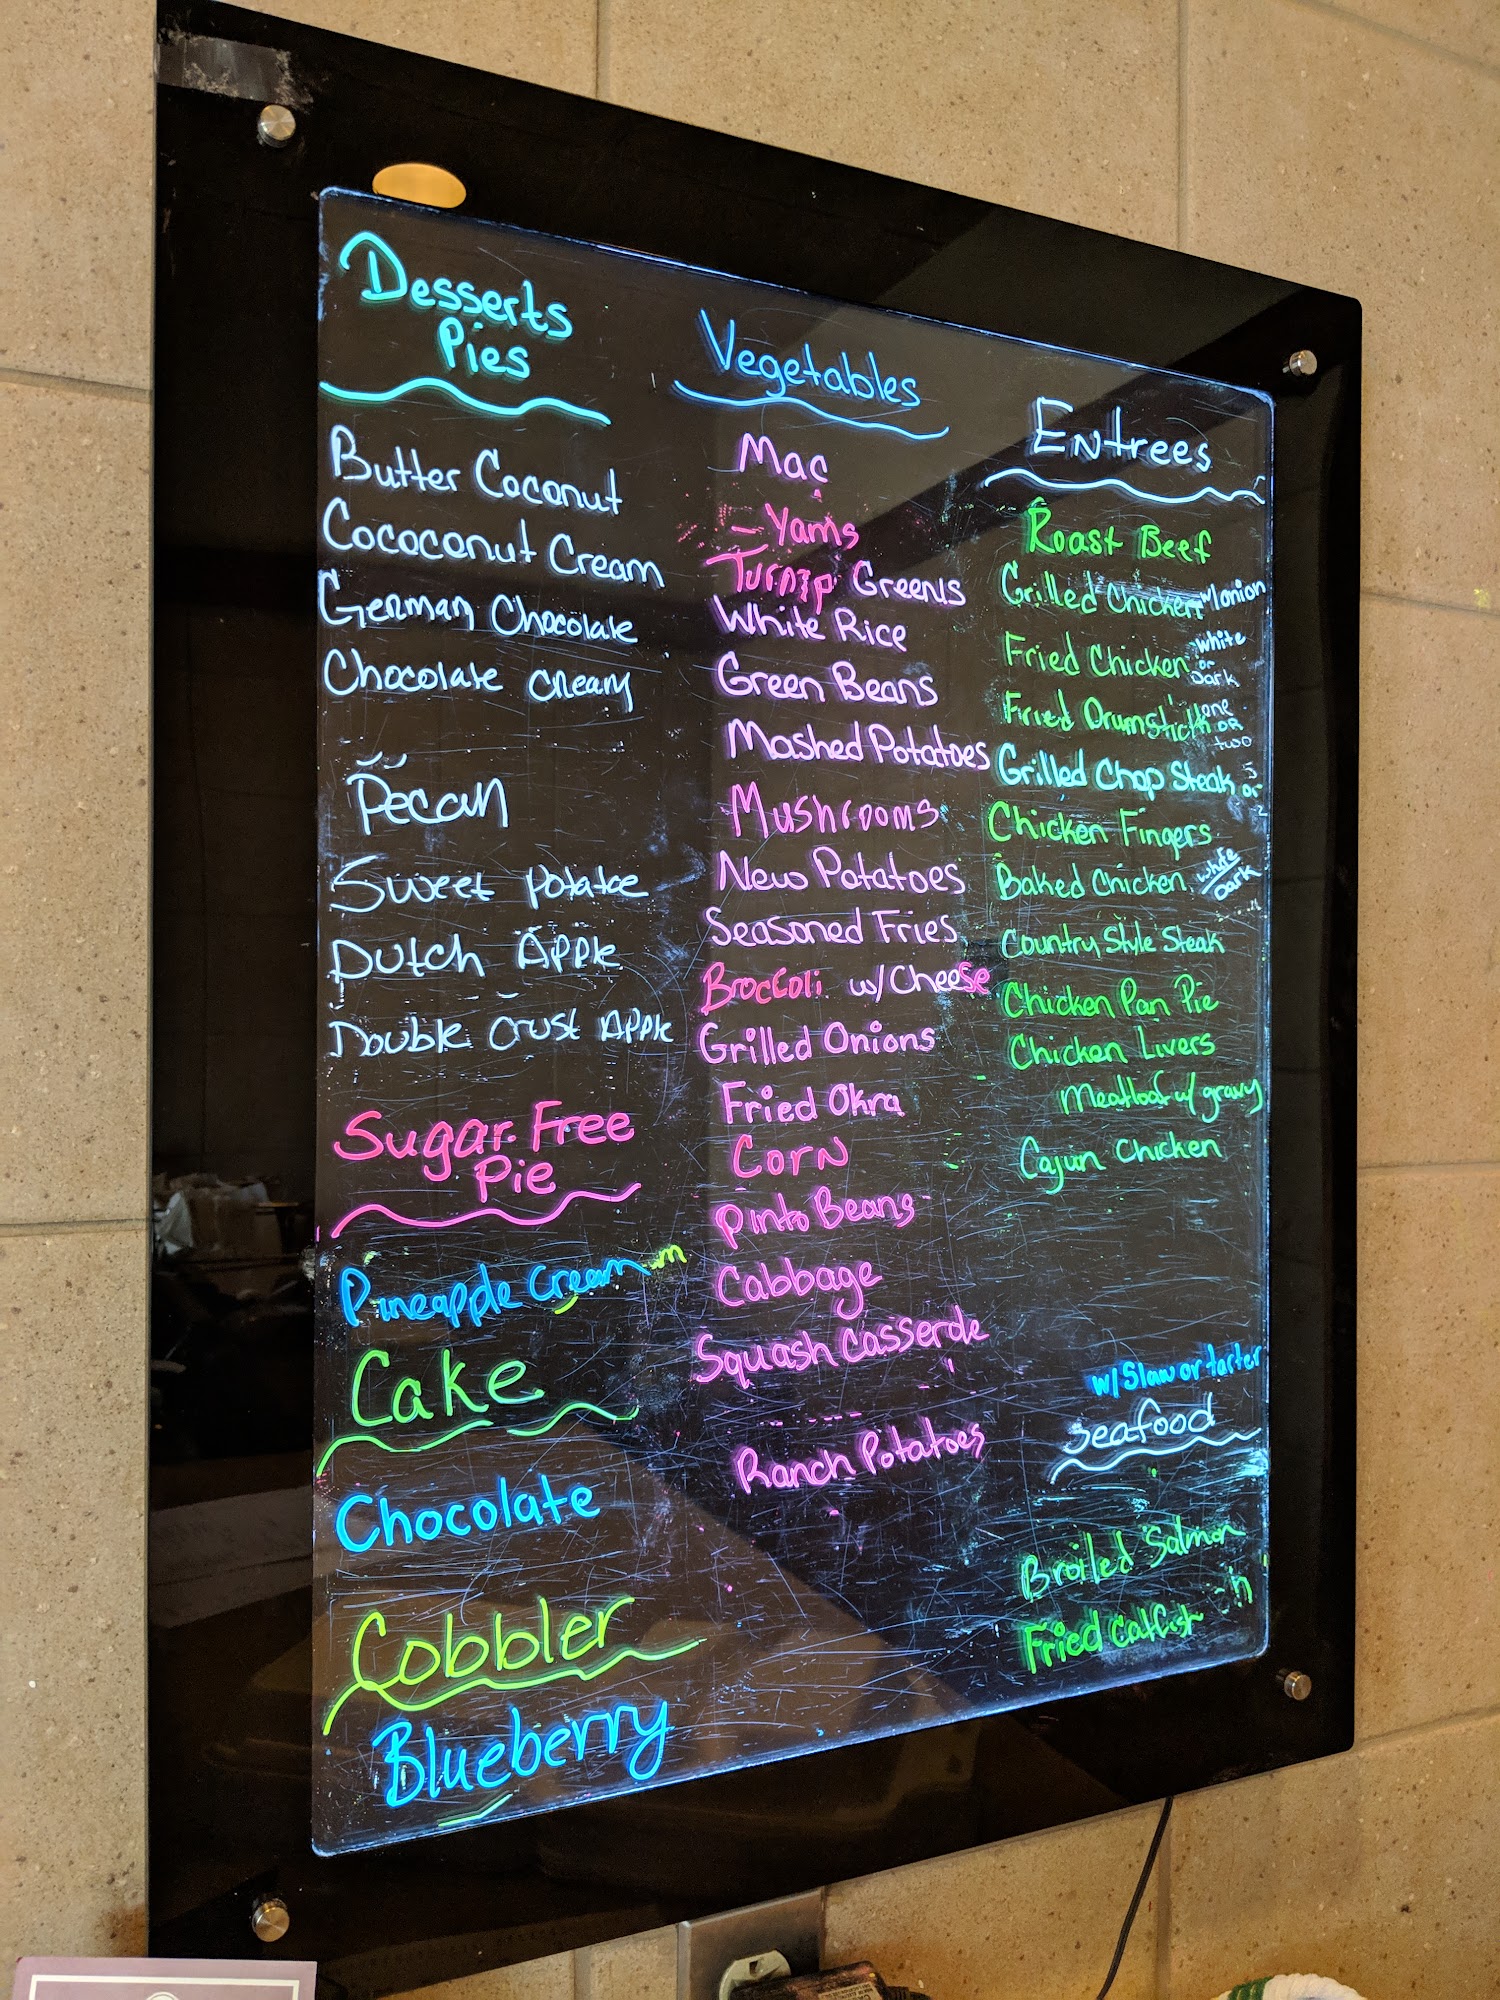 Desserts
Pies
Butter Coconut
Cococonut Cream
German Chocolate
Chocolate cream
Pecan
Sweet potatoe
Dutch Apple
Double Crust Apple
Sugar Free
Pie
Pineapple cream
Cake
Chocolate
Cobbler
Blueberry
Vegetables
Mac
Yams
Turnip Greens
White Rice
Green Beans
Mashed Potatoes
Mushrooms
New Potatoes
Seasoned Fries
Broccoli w/ Cheese
Grilled Onions
Fried Okra
Corn
Pinto Beans
Cabbage
Squash Casserole
Ranch Potatoes
Entrees
Roast Beef
Grilled Chicken w/onion
Fried Chicken white
or
Dark
Fried Drumstick one
OR
two
Grilled Chop Steak 5
or
Chicken Fingers
Baked Chicken white
Dark
Country Style Steak
Chicken Pan Pie
Chicken Livers
Meatloaf w/ gravy
Cajun Chicken
w/ Slaw or tarter
Seafood
Broiled Salmon
Fried Catfish